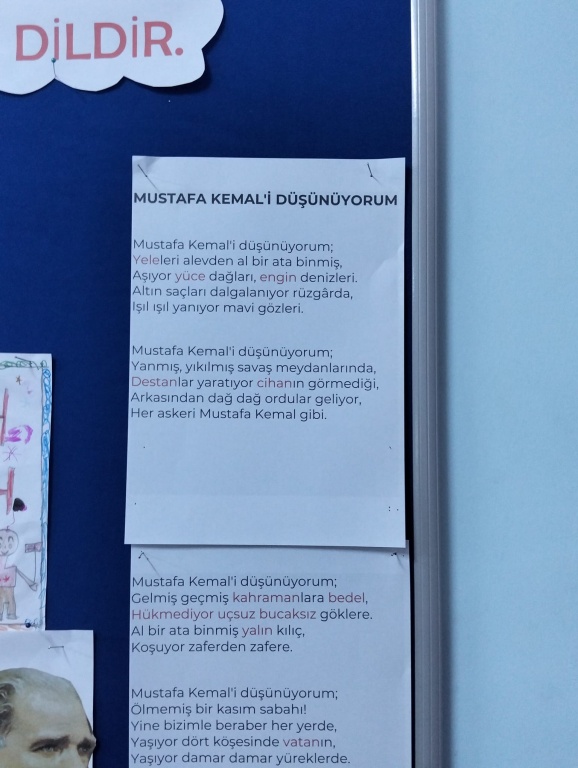 DİLDİR.
MUSTAFA KEMAL'İ DÜŞÜNÜYORUM
Mustafa Kemal'i düşünüyorum;
Yeleleri alevden al bir ata binmiş,
Aşıyor yüce dağları, engin denizleri.
Altın saçları dalgalanıyor rüzgârda,
Işıl ışıl yanıyor mavi gözleri.
Mustafa Kemal'i düşünüyorum;
Yanmış, yıkılmış savaş meydanlarında,
Destanlar yaratıyor cihanın görmediği,
Arkasından dağ dağ ordular geliyor,
Her askeri Mustafa Kemal gibi.
Mustafa Kemal'i düşünüyorum;
Gelmiş geçmiş kahramanlara bedel,
Hükmediyor uçsuz bucaksız göklere.
Al bir ata binmiş yalın kılıç,
Koşuyor zaferden zafere.
Mustafa Kemal'i düşünüyorum;
Ölmemiş bir kasım sabahı!
Yine bizimle beraber her yerde,
Yaşıyor dört köşesinde vatanın,
Yaşıyor damar damar yüreklerde.